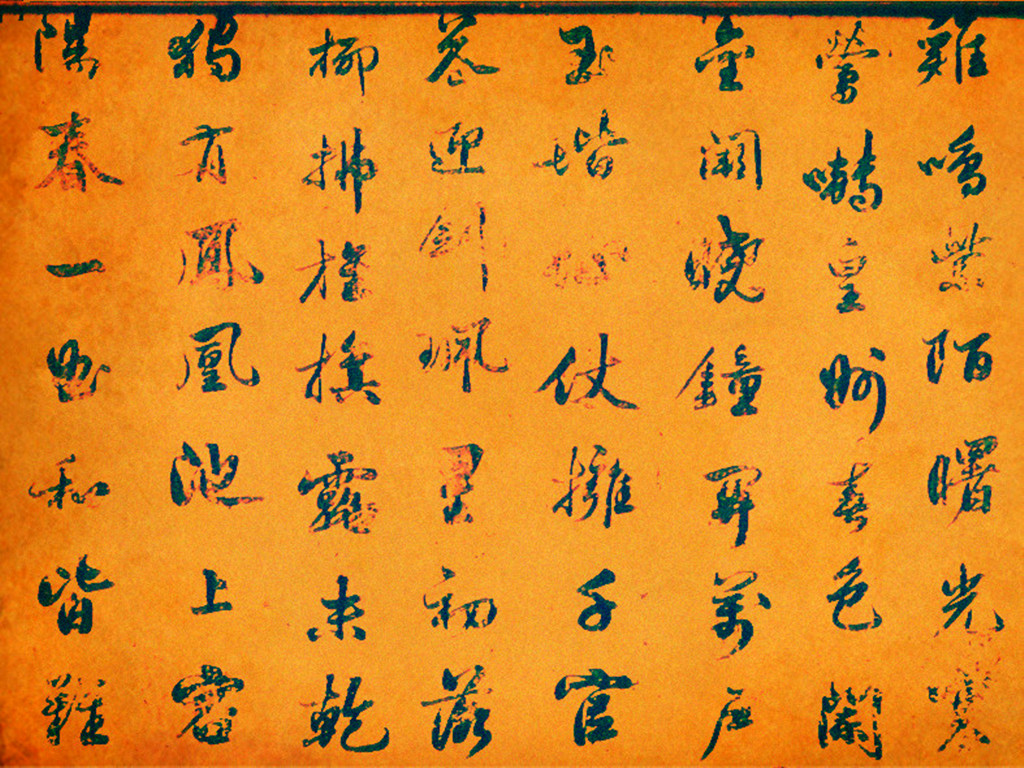 雞鳴紫陌曙光寒
鶯囀皇州春色闌
金闕曉鐘開萬戶
玉堦仙仗擁千官
花迎劍珮星初落
柳拂旌旗露未乾
獨有鳳凰池上客
陽春一曲和皆難